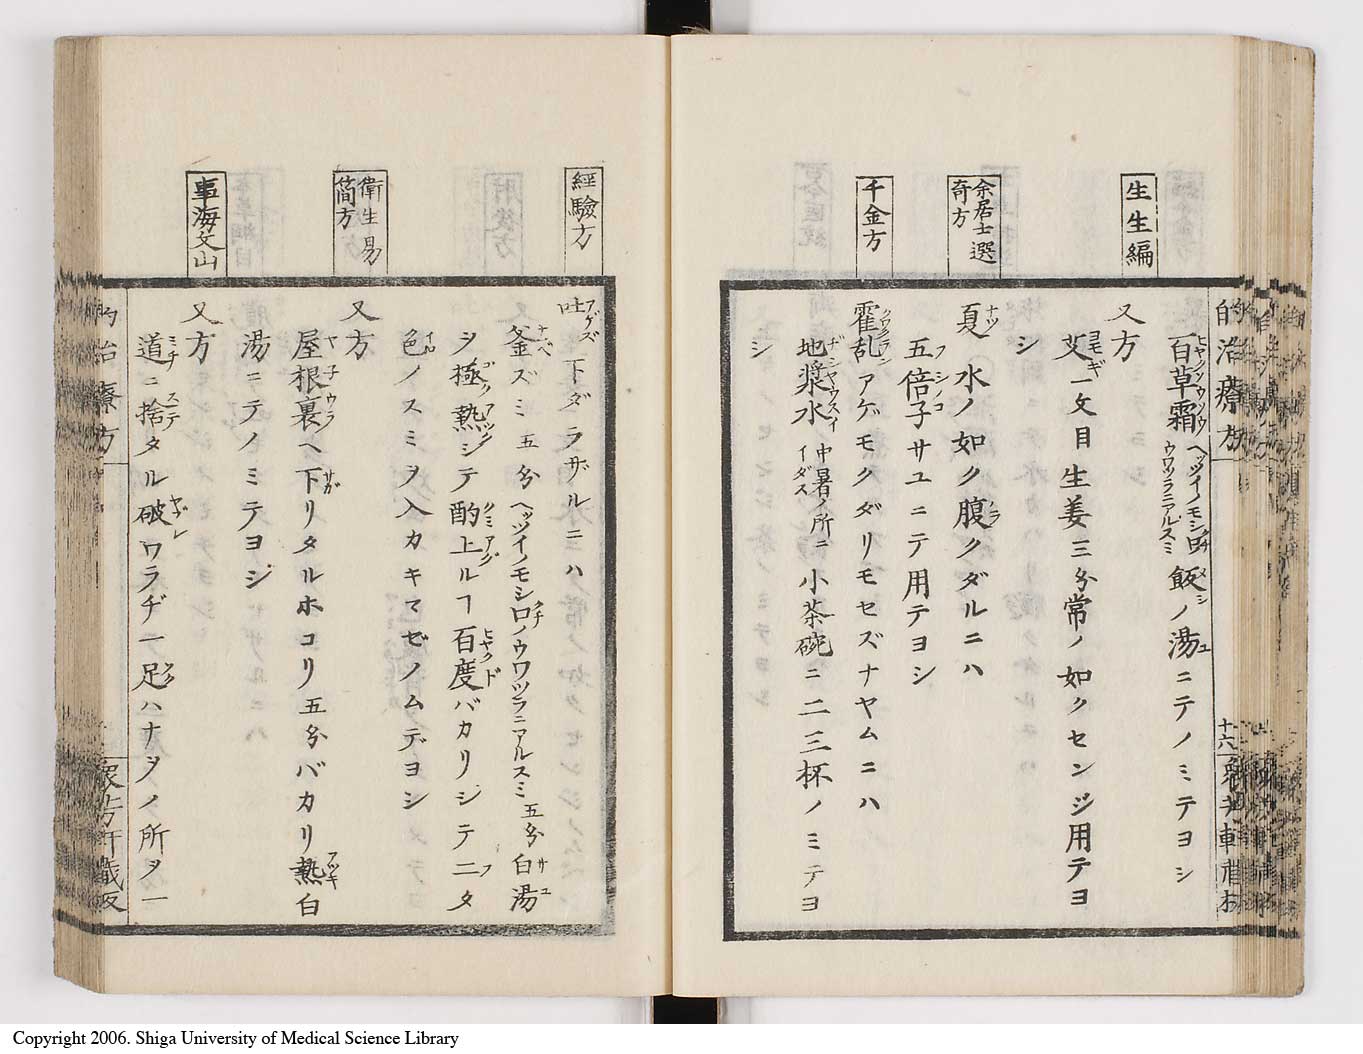 生生編
余居士選
奇方
千金方
的治療方
十六
百草霜ヘツイノモシロウワツラニアルスミ飯ノ湯ニテノミテヨシ
又方
艾一匁目生姜三分常ノ如クセンジ用テヨ
シ
夏水ノ如ク腹クダルニハ
五倍子サユニテ用テヨシ
霍乱アゲモクダリモセズナヤムニハ
地漿水中暑ノ所ニイダス小茶碗ニ二三杯ノミテヨ
シ
經驗方
衛生易
簡方
事海文山
吐下ダラザルニハ
釜ズミ五分ヘツヅイノモシロノウワツラニアルスミ五分白湯
ヲ極熱シテ酌上ルヿ百度バカリシテ二タ
色ノスミヲ入カキマゼノムデヨシ
又方
屋根裏ヘ下リタルホコリ五分バカリ熱白
湯ニテノミテヨシ
又方
道ニ捨タル破ワラヂ一足ハナヲノ所ヲ一
的治療方
Copyright 2006. Shiga University of Medical Science Library